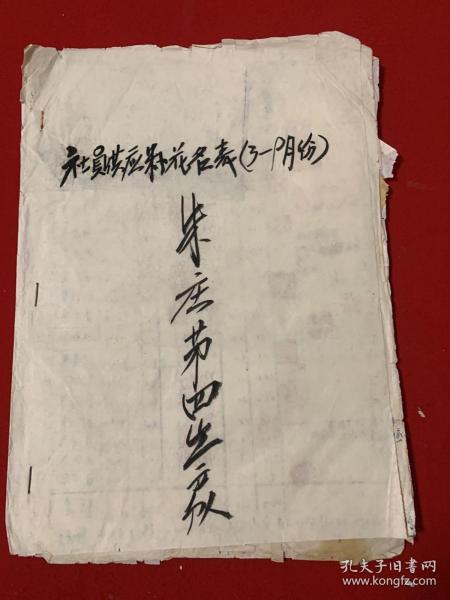 社员供应粮花名表(3—9月份)
朱庄第四生产队
孔夫子旧书网
www.kongfz.com